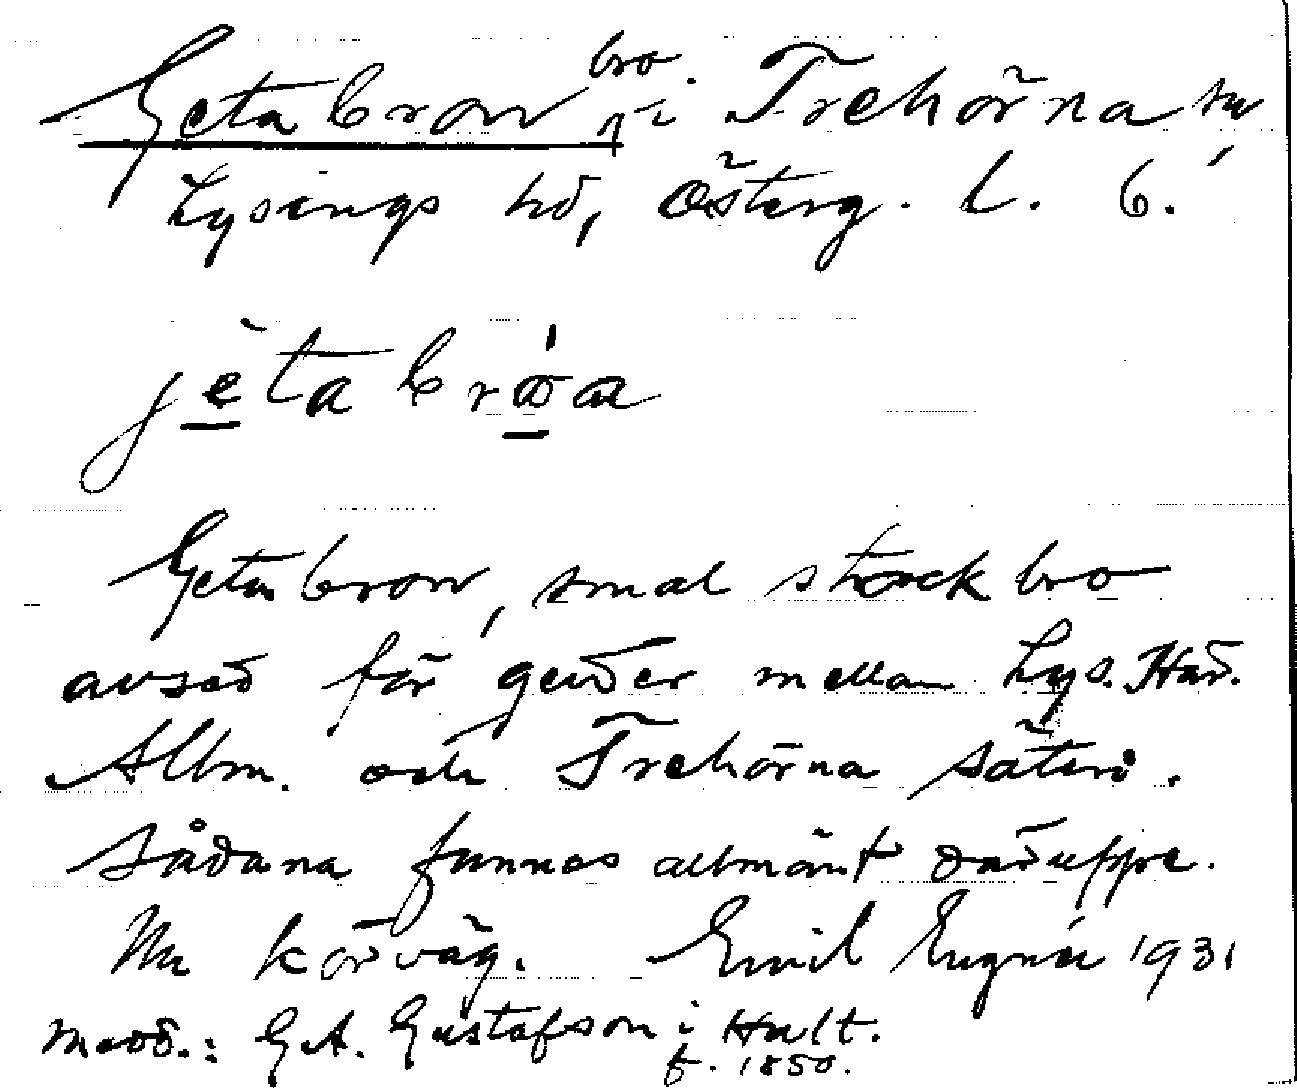 Getabron bro. i Trehörna sn
Lysings hd, Österg. l. 6.
jetabroa
Getabron, smal stockbro
avsed för getter mellan Lys. Här.
Allm. och Trehörna säteri.
Sådana funnos allmänt däruppe.
Nu körväg. Emil 1931
Medd.: G.A. Gustafson i Hult.
f. 1850.